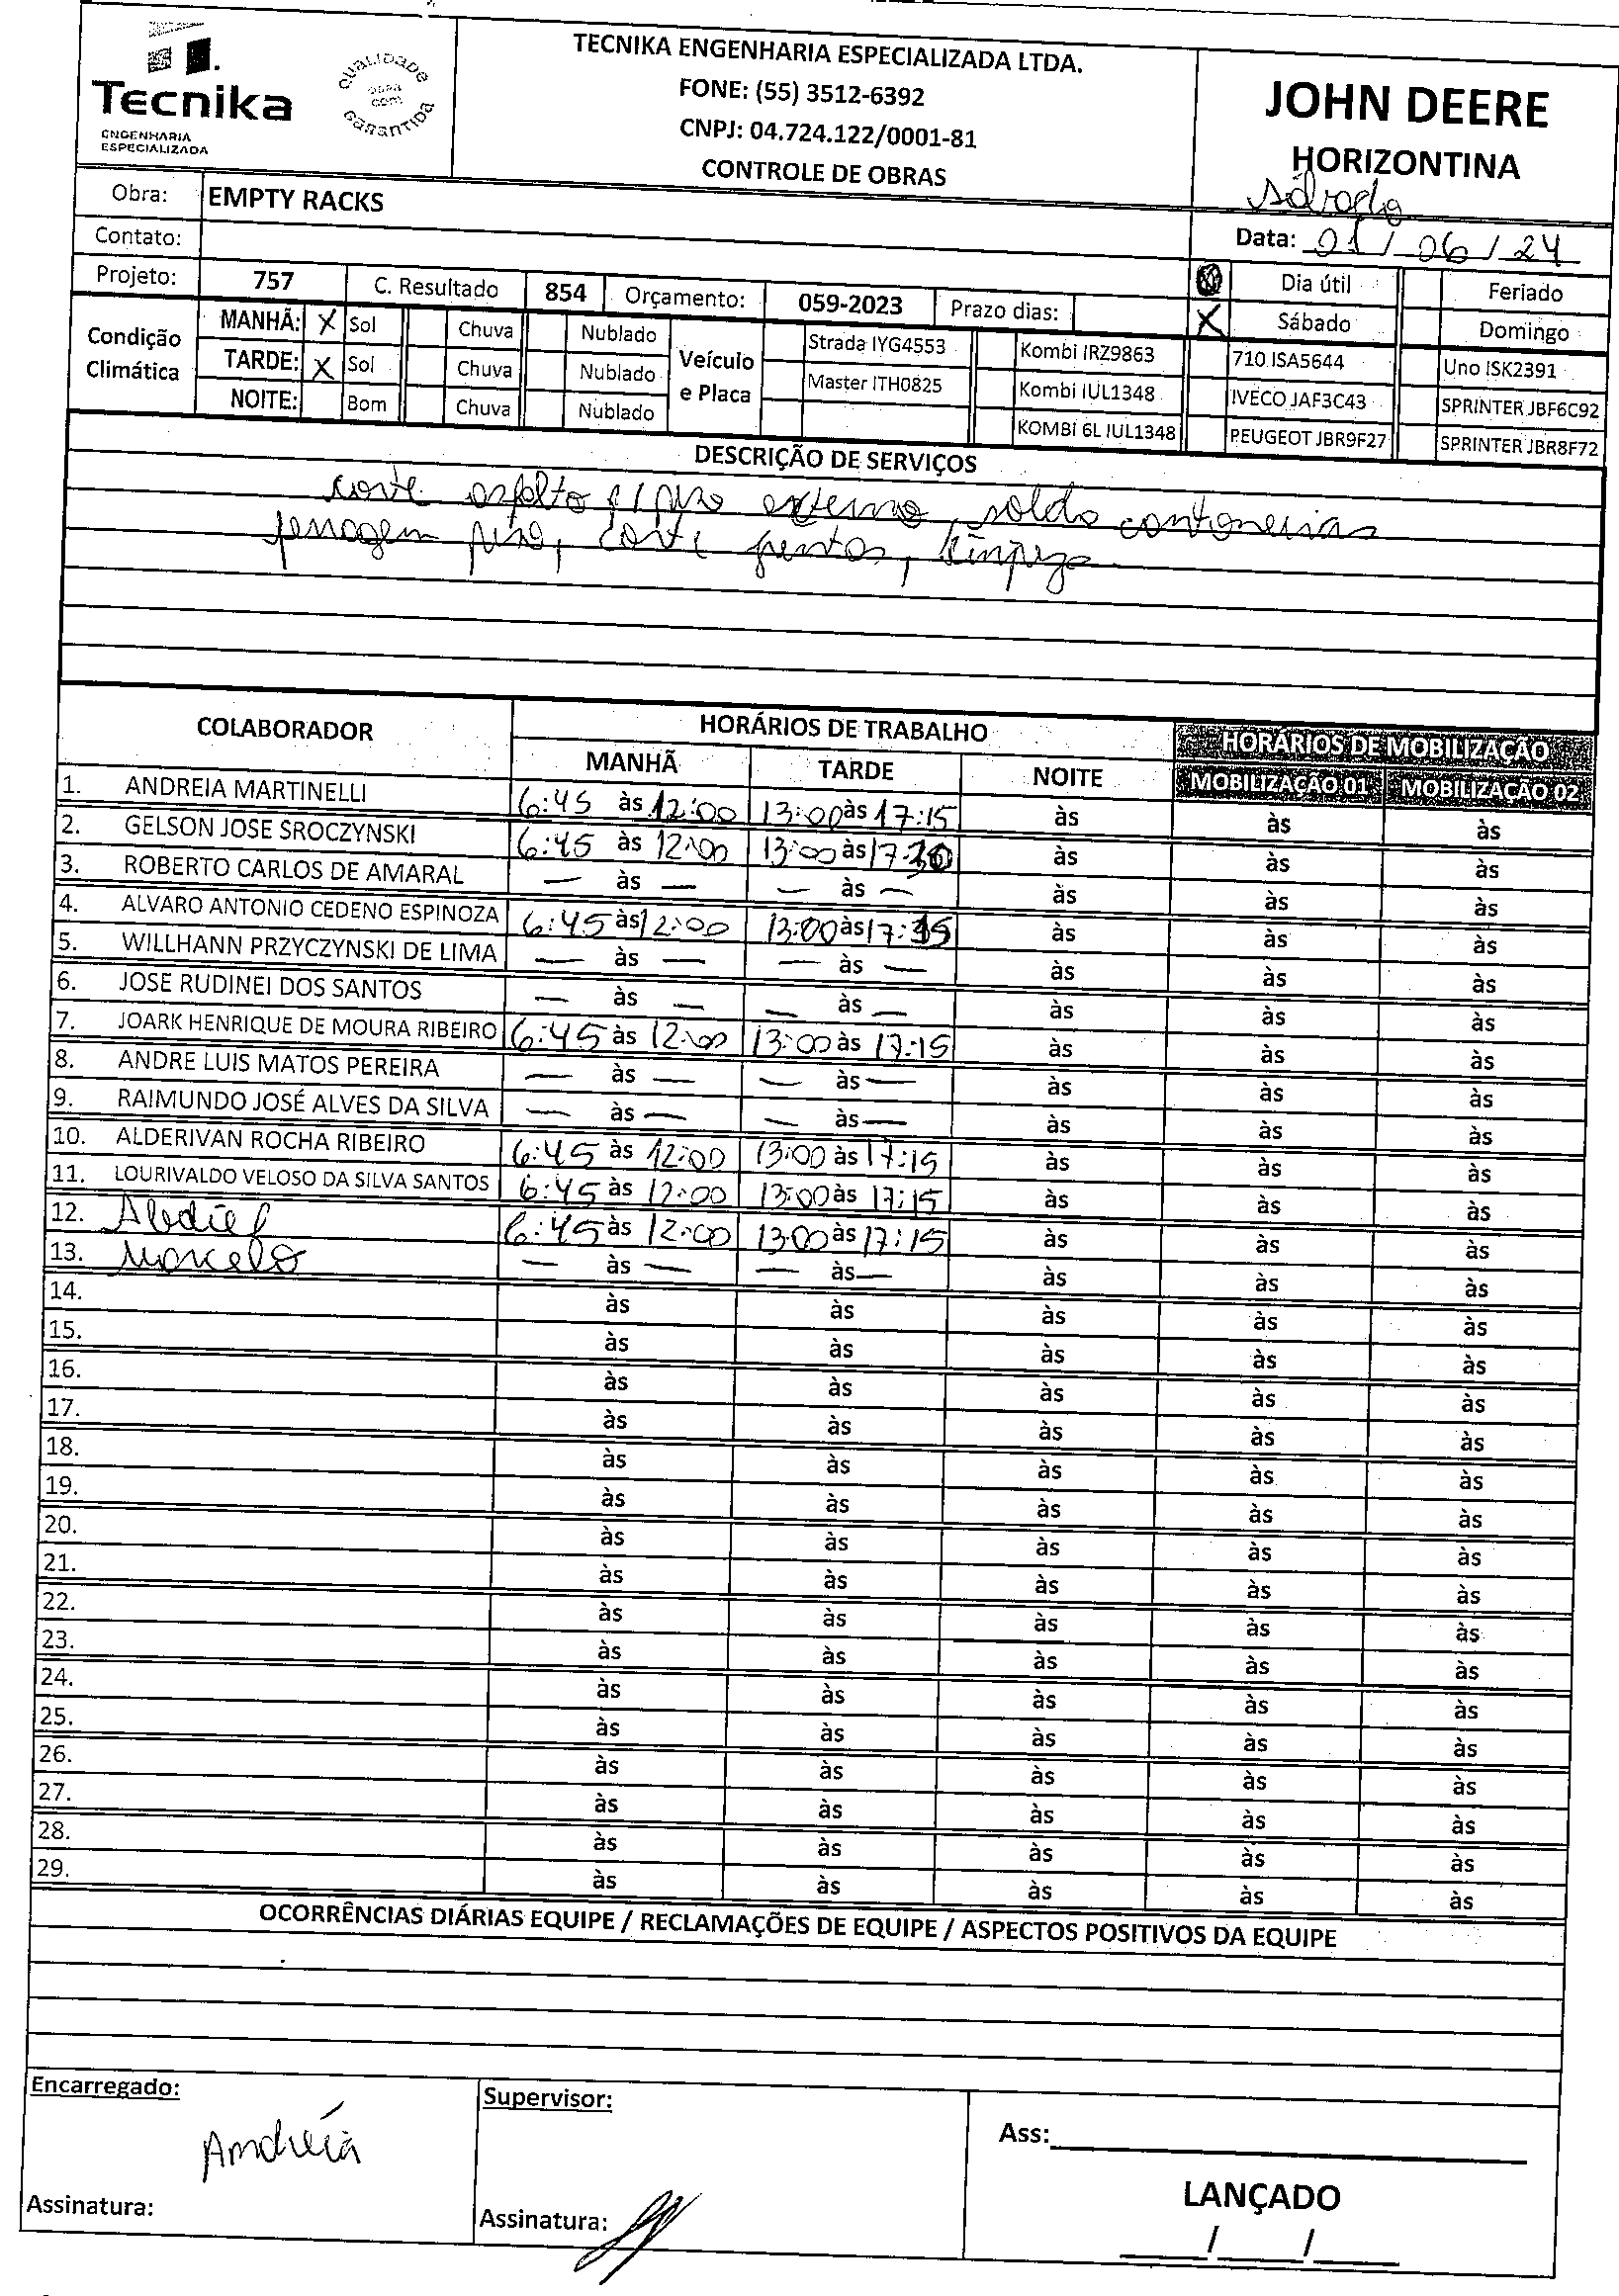 Tecnika
ENGENHARIA
ESPECIALIZADA
QUALIDADE
OBRA
COM
GARANTIDA
TECNIKA ENGENHARIA ESPECIALIZADA LTDA.
FONE: (55) 3512-6392
CNPJ: 04.724.122/0001-81
CONTROLE DE OBRAS
JOHN DEERE
HORIZONTINA
Sábado
Obra: EMPTY RACKS
Contato:
Data: 01/06/24
Projeto: 757 C. Resultado 854 Orçamento: 059-2023 Prazo dias: Dia útil Feriado
X Sábado Domingo
Condição Climática
MANHÃ: X Sol Chuva Nublado
TARDE: X Sol Chuva Nublado
NOITE: Bom Chuva Nublado
Veículo e Placa
Strada IYG4553 Kombi IRZ9863 710 ISA5644 Uno ISK2391
Master ITH0825 Kombi IUL1348 IVECO JAF3C43 SPRINTER JBF6C92
KOMBI 6L IUL1348 PEUGEOT JBR9F27 SPRINTER JBR8F72
DESCRIÇÃO DE SERVIÇOS
corte asfalto p/ piso externo, solda cantoneiras
ferragem piso, corte juntas, limpeza
COLABORADOR HORÁRIOS DE TRABALHO HORÁRIOS DE MOBILIZAÇÃO
MANHÃ TARDE NOITE MOBILIZAÇÃO 01 MOBILIZAÇÃO 02
1. ANDREIA MARTINELLI 6:45 às 12:00 13:00 às 17:15 às às às
2. GELSON JOSE SROCZYNSKI 6:45 às 12:00 13:00 às às às às
3. ROBERTO CARLOS DE AMARAL — às — — às — às às às
4. ALVARO ANTONIO CEDENO ESPINOZA 6:45 às 12:00 13:00 às às às às
5. WILLHANN PRZYCZYNSKI DE LIMA — às — — às — às às às
6. JOSE RUDINEI DOS SANTOS — às — — às — às às às
7. JOARK HENRIQUE DE MOURA RIBEIRO 6:45 às 12:00 13:00 às 17:15 às às às
8. ANDRE LUIS MATOS PEREIRA — às — — às — às às às
9. RAIMUNDO JOSÉ ALVES DA SILVA — às — — às — às às às
10. ALDERIVAN ROCHA RIBEIRO 6:45 às 12:00 13:00 às 17:15 às às às
11. LOURIVALDO VELOSO DA SILVA SANTOS 6:45 às 12:00 13:00 às 17:15 às às às
12. Abdiel 6:45 às 12:00 13:00 às 17:15 às às às
13. Marcelo — às — — às — às às às
14. às às às às às
15. às às às às às
16. às às às às às
17. às às às às às
18. às às às às às
19. às às às às às
20. às às às às às
21. às às às às às
22. às às às às às
23. às às às às às
24. às às às às às
25. às às às às às
26. às às às às às
27. às às às às às
28. às às às às às
29. às às às às às
OCORRÊNCIAS DIÁRIAS EQUIPE / RECLAMAÇÕES DE EQUIPE / ASPECTOS POSITIVOS DA EQUIPE
Encarregado: Supervisor:
Andréia
Ass:
LANÇADO
Assinatura: Assinatura:
/ /